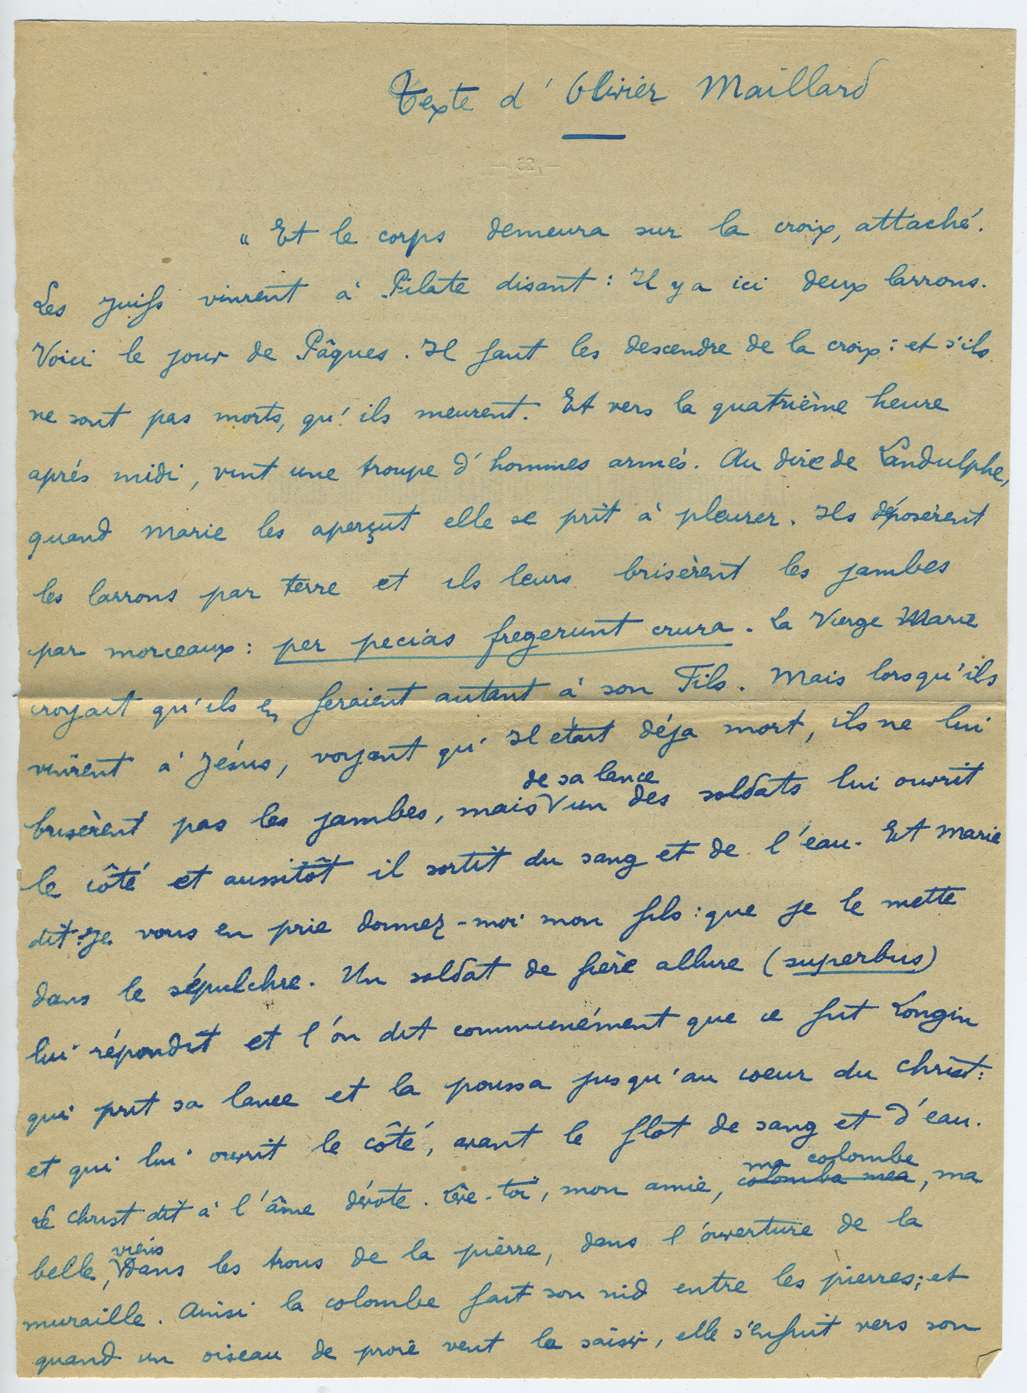 Texte d'Olivier Maillard
" Et le corps demeura sur la croix, attaché.
Les juifs vinrent à Pilate disant : Il y a ici deux larrons.
Voici le jour de Pâques. Il faut les descendre de la croix : et s'ils
ne sont pas morts, qu'ils meurent. Et vers la quatrième heure
après midi, vint une troupe d'hommes armés. Au dire de Landulphe,
quand Marie les aperçut elle se prit à pleurer. Ils déposèrent
les larrons par terre et ils leurs brisèrent les jambes
par morceaux : per pecias fregerunt crura. La Vierge Marie
croyait qu'ils en feraient autant à son Fils. Mais lorsqu'ils
vinrent à Jésus, voyant qu'Il était déjà mort, ils ne lui
de sa lance
brisèrent pas les jambes, mais V un des soldats lui ouvrit
le côté et aussitôt il sortit du sang et de l'eau. Et Marie
dit : Je vous en prie donnez-moi mon fils : que je le mette
dans le sépulchre. Un soldat de fière allure (superbus)
lui répondit et l'on dit communément que ce fut Longin
qui prit sa lance et la poussa jusqu'au coeur du Christ :
et qui lui ouvrit le côté, avant le flot de sang et d'eau.
ma colombe
Le Christ dit à l'âme dévote. Lève-toi, mon amie, colomba mea, ma
viens
belle, V dans les trous de la pierre, dans l'ouverture de la
muraille. Ainsi la colombe fait son nid entre les pierres ; et
quand un oiseau de proie veut la saisir, elle s'enfuit vers son